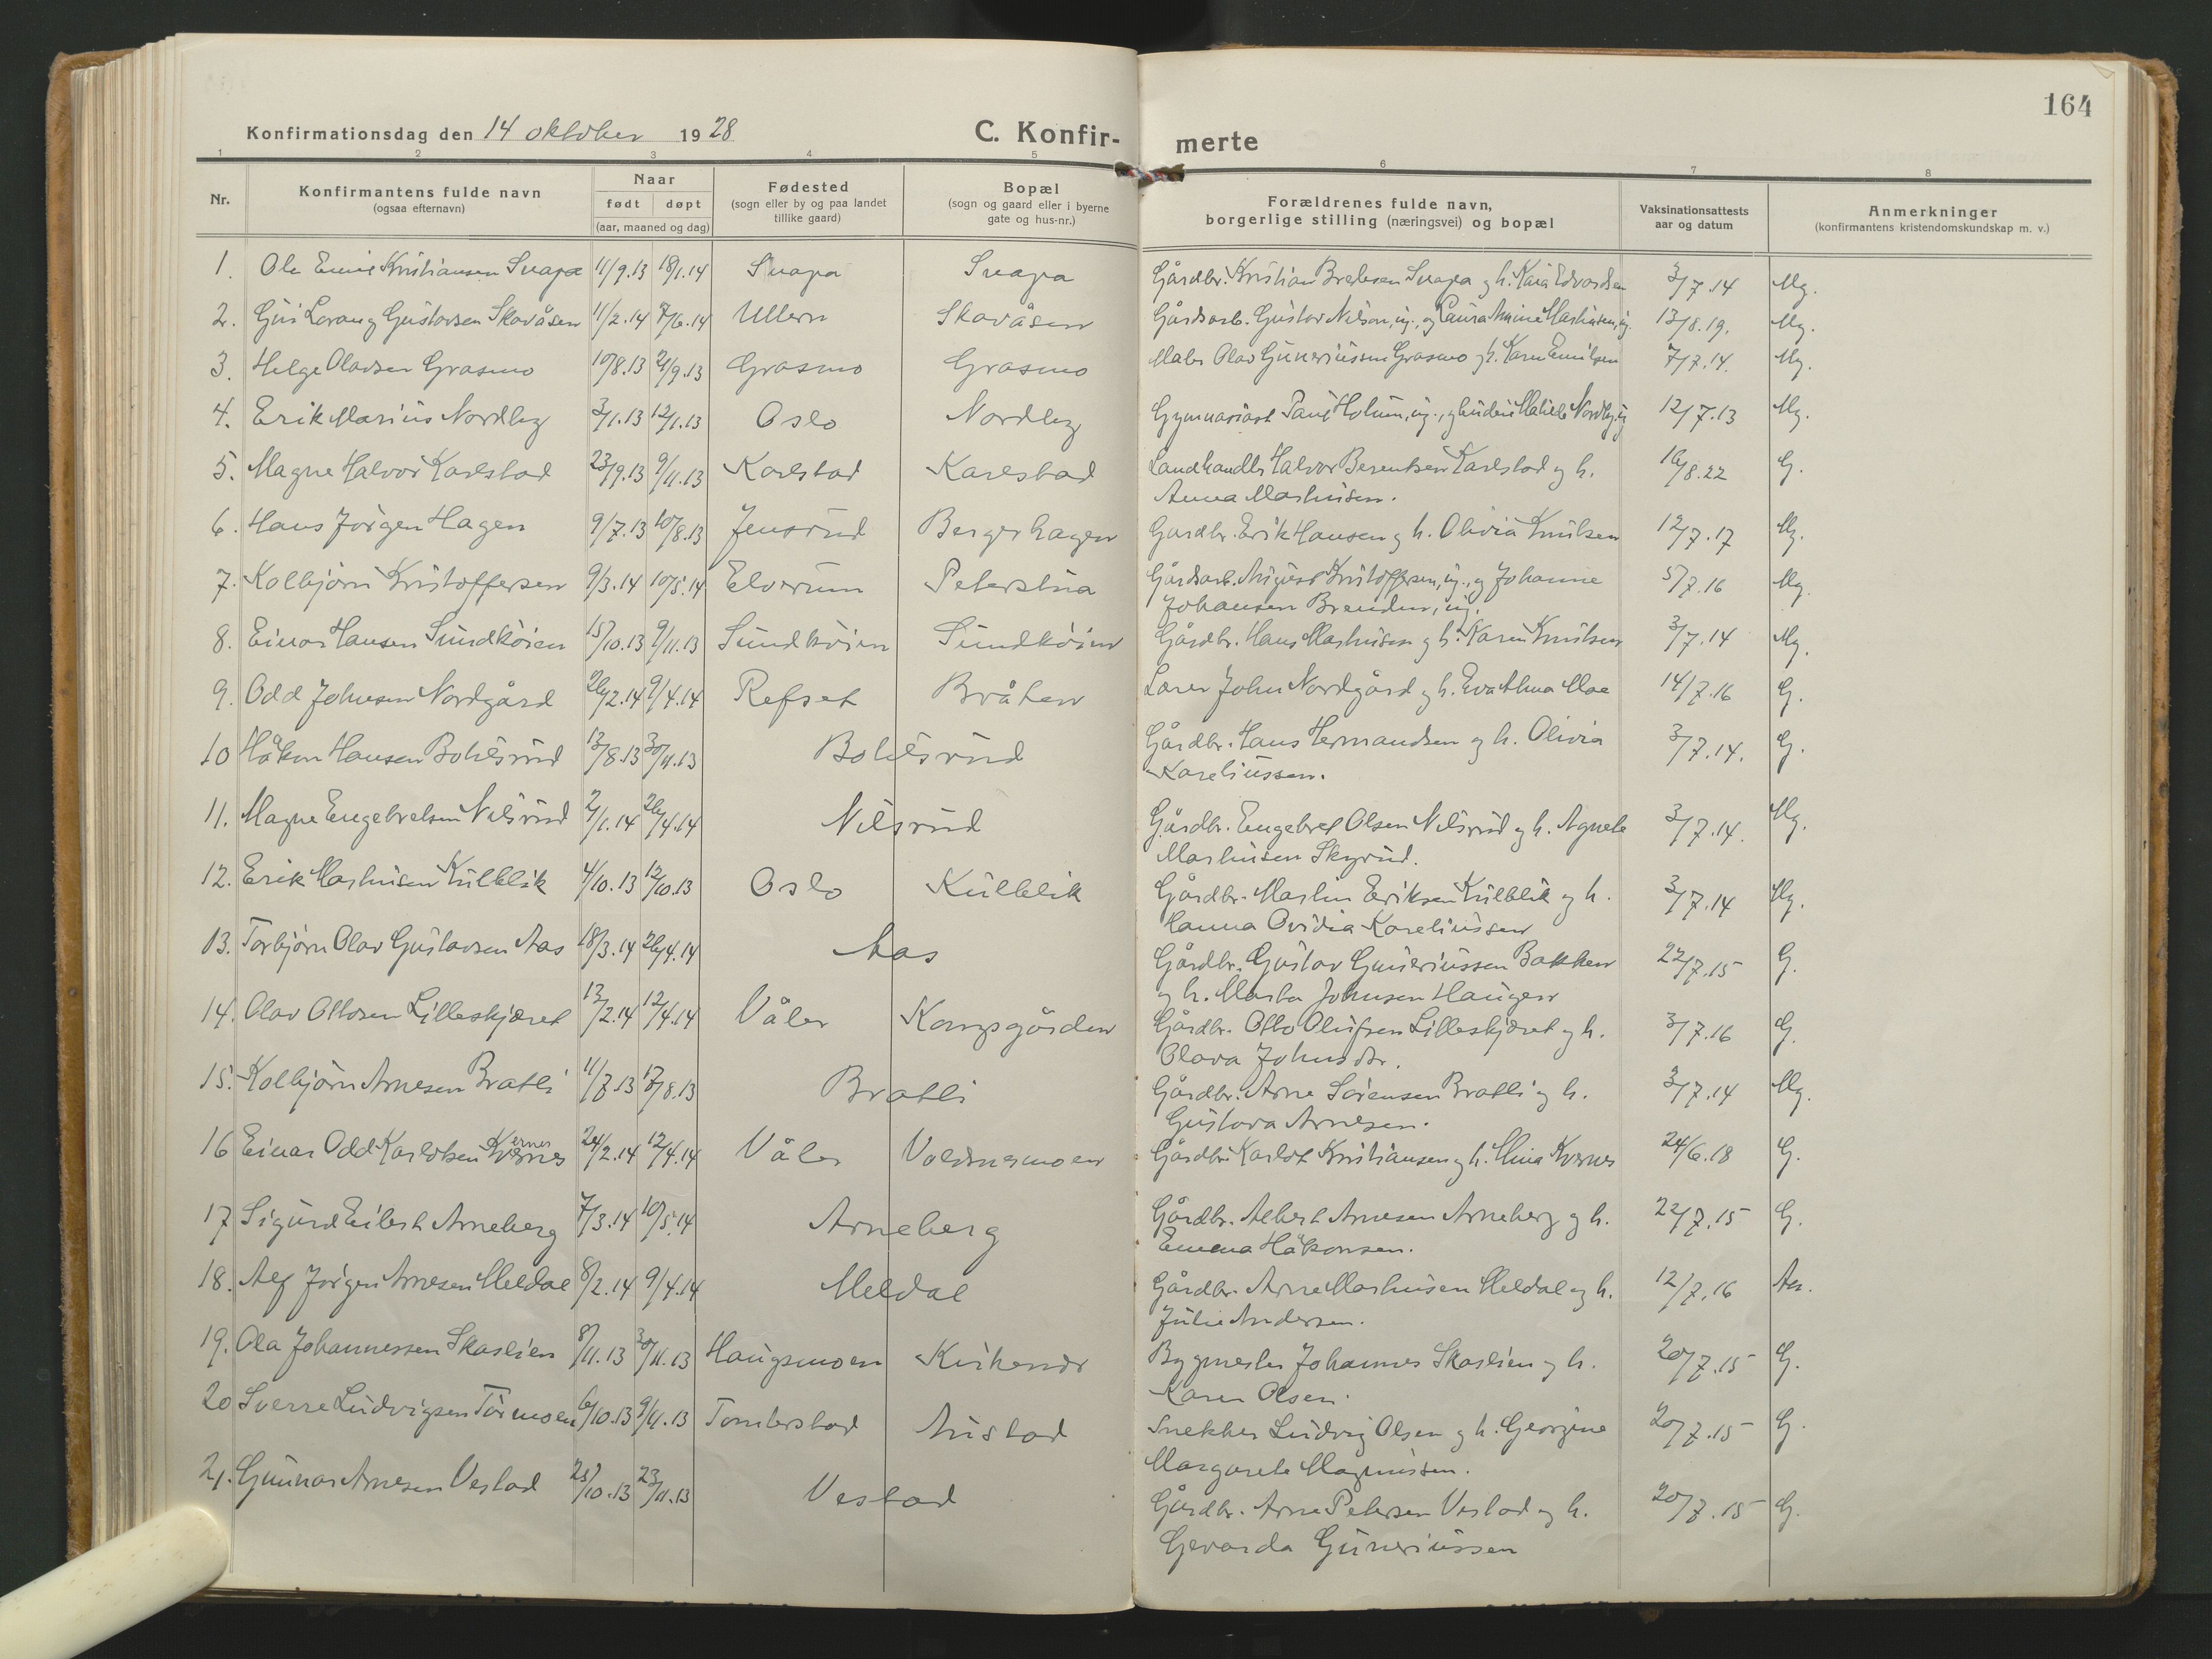 164
Konfirmationsdag den 14 oktober 1928
C. Konfir- merte
1 2 3 4 5 6 7 8
Nr. | Konfirmantens fulde navn (ogsaa efternavn) | Naar født | døpt (aar, maaned og dag) | Fødested (sogn eller by og paa landet tillike gaard) | Bopæl (sogn og gaard eller i byerne gate og hus-nr.) | Forældrenes fulde navn, borgerlige stilling (næringsvei) og bopæl | Vaksinationsattests aar og datum | Anmerkninger (konfirmantens kristendomskundskap m. v.)
1. Ole Emil Kristiansen Snapa 11/9.13 18/1.14 Snapa Snapa Gårdbr. Kristian Bredesen Snapa og h. Kaia Edvardsen 3/7.14 Mg.
2. Gus Lorang Gustavsen Skavåsen 11/2.14 7/6.14 Ullern Skavåsen Gårdsarb. Gustav Nilsen, ug., og Laura Martinsen, ug. 13/8.19. Mg.
3. Helge Olavsen Grasmo 10/8.13 21/9.13 Grasmo Grasmo Maler Olav Guneriussen Grasmo og h. Karen Emilsen 7/7.14. Mg.
4. Erik Marius Nordby 3/1.13 12/1.13 Oslo Nordby Gymnasiast Paul Holum, ug., og Matilde Nordby, ug 12/7.13 Mg.
5. Magne Halvor Karlstad 23/9.13 9/11.13 Karlstad Karlstad Landhandler Halvor Berentsen Karlstad og h.
Anna Martinsen. 16/8.22 G.
6. Hans Jørgen Hagen 9/7.13 10/8.13 Jensrud Bergerhagen Gardbr. Erik Hansen og h. Olivia Knutsen 12/7.17 Mg.
7. Kolbjørn Kristoffersen 9/3.14 10/5.14 Elverum Peterstua Gårdsarb. August Kristoffersen, ug., og Johanne
Johansen Brenden, ug. 5/7.16 Mg.
8. Einar Hansen Sundkøien 15/10.13 9/11.13 Sundkøien Sundkøien Gårdbr. Hans Martinsen og h. Karen Knutsen 3/7.14 Mg.
9. Odd Johnsen Nordgård 26/2.14 9/4.14 Refset Bråten Lærer John Nordgård og h. Eva Alma Moe 14/7.16 G.
10 Håkon Hansen Bolilsrud 13/8.13 30/11.13 Bolilsrud Gårdbr. Hans Hermandsen og h. Olivia
Kareliussen. 3/7.14. G.
11. Magne Engebretsen Nilsrud 2/1.14 26/4.14 Nilsrud Gårdbr. Engebret Olsen Nilsrud og h. Agnete
Martinsen Skyrud. 3/7.14. Mg.
12. Erik Martinsen Kulblik 4/10.13 12/10.13 Oslo Kulblik Gårdbr. Martin Eriksen Kulblik og h.
Hanna Ovidia Kareliussen 3/7.14 Mg.
13. Torbjørn Olav Gustavsen Aas 18/3.14 26/4.14 Aas Gårdbr. Gustav Guneriussen Bakken
og h. Marta Johnsen Haugen 22/7.15 G.
14. Olav Ottosen Lilleskjæret 13/2.14 12/4.14 Våler Kongsgården Gårdbr. Otto Olufsen Lilleskjæret og h.
Olava Johnsdtr. 3/7.16 G.
15. Kolbjørn Arnesen Bratli 11/7.13 17/8.13 Bratli Gårdbr. Arne Sørensen Bratli og h.
Gustava Arnesen. 3/7.14 Mg.
16 Einar Odd Karlotsen Kvernes ernes 24/2.14 12/4.14 Våler Voldnesmoen Gårdbr. Karlot Kristiansen og h. Mina Kvernes 24/6.18 G.
17 Sigurd Eilert Arneberg 7/3.14 10/5.14 Arneberg Gårdbr. Albert Arnesen Arneberg og h.
Emma Håkonsen. 22/7.15 G.
18. Alf Jørgen Arnesen Meldal 8/2.14 9/4.14 Meldal Gårdbr. Arne Martinsen Meldal og h.
Julie Andersen. 12/7.16
19. Ola Johannessen Skaslien 8/11.13 30/11.13 Haugsmoen Kirkenær Bygmester Johannes Skaslien og h.
Karen Olsen. 20/7.15 G.
20 Sverre Ludvigsen Tørmoen 6/10.13 9/11.13 Tomterstad Austad Snekker Ludvig Olsen og h. Georgine
Margarete Magnussen. 20/7.15 G.
21. Gunnar Arnesen Vestad 25/10.13 23/11.13 Vestad Gårdbr. Arne Petersen Vestad og h.
Gevarda Guneriussen 20/7.15 G.